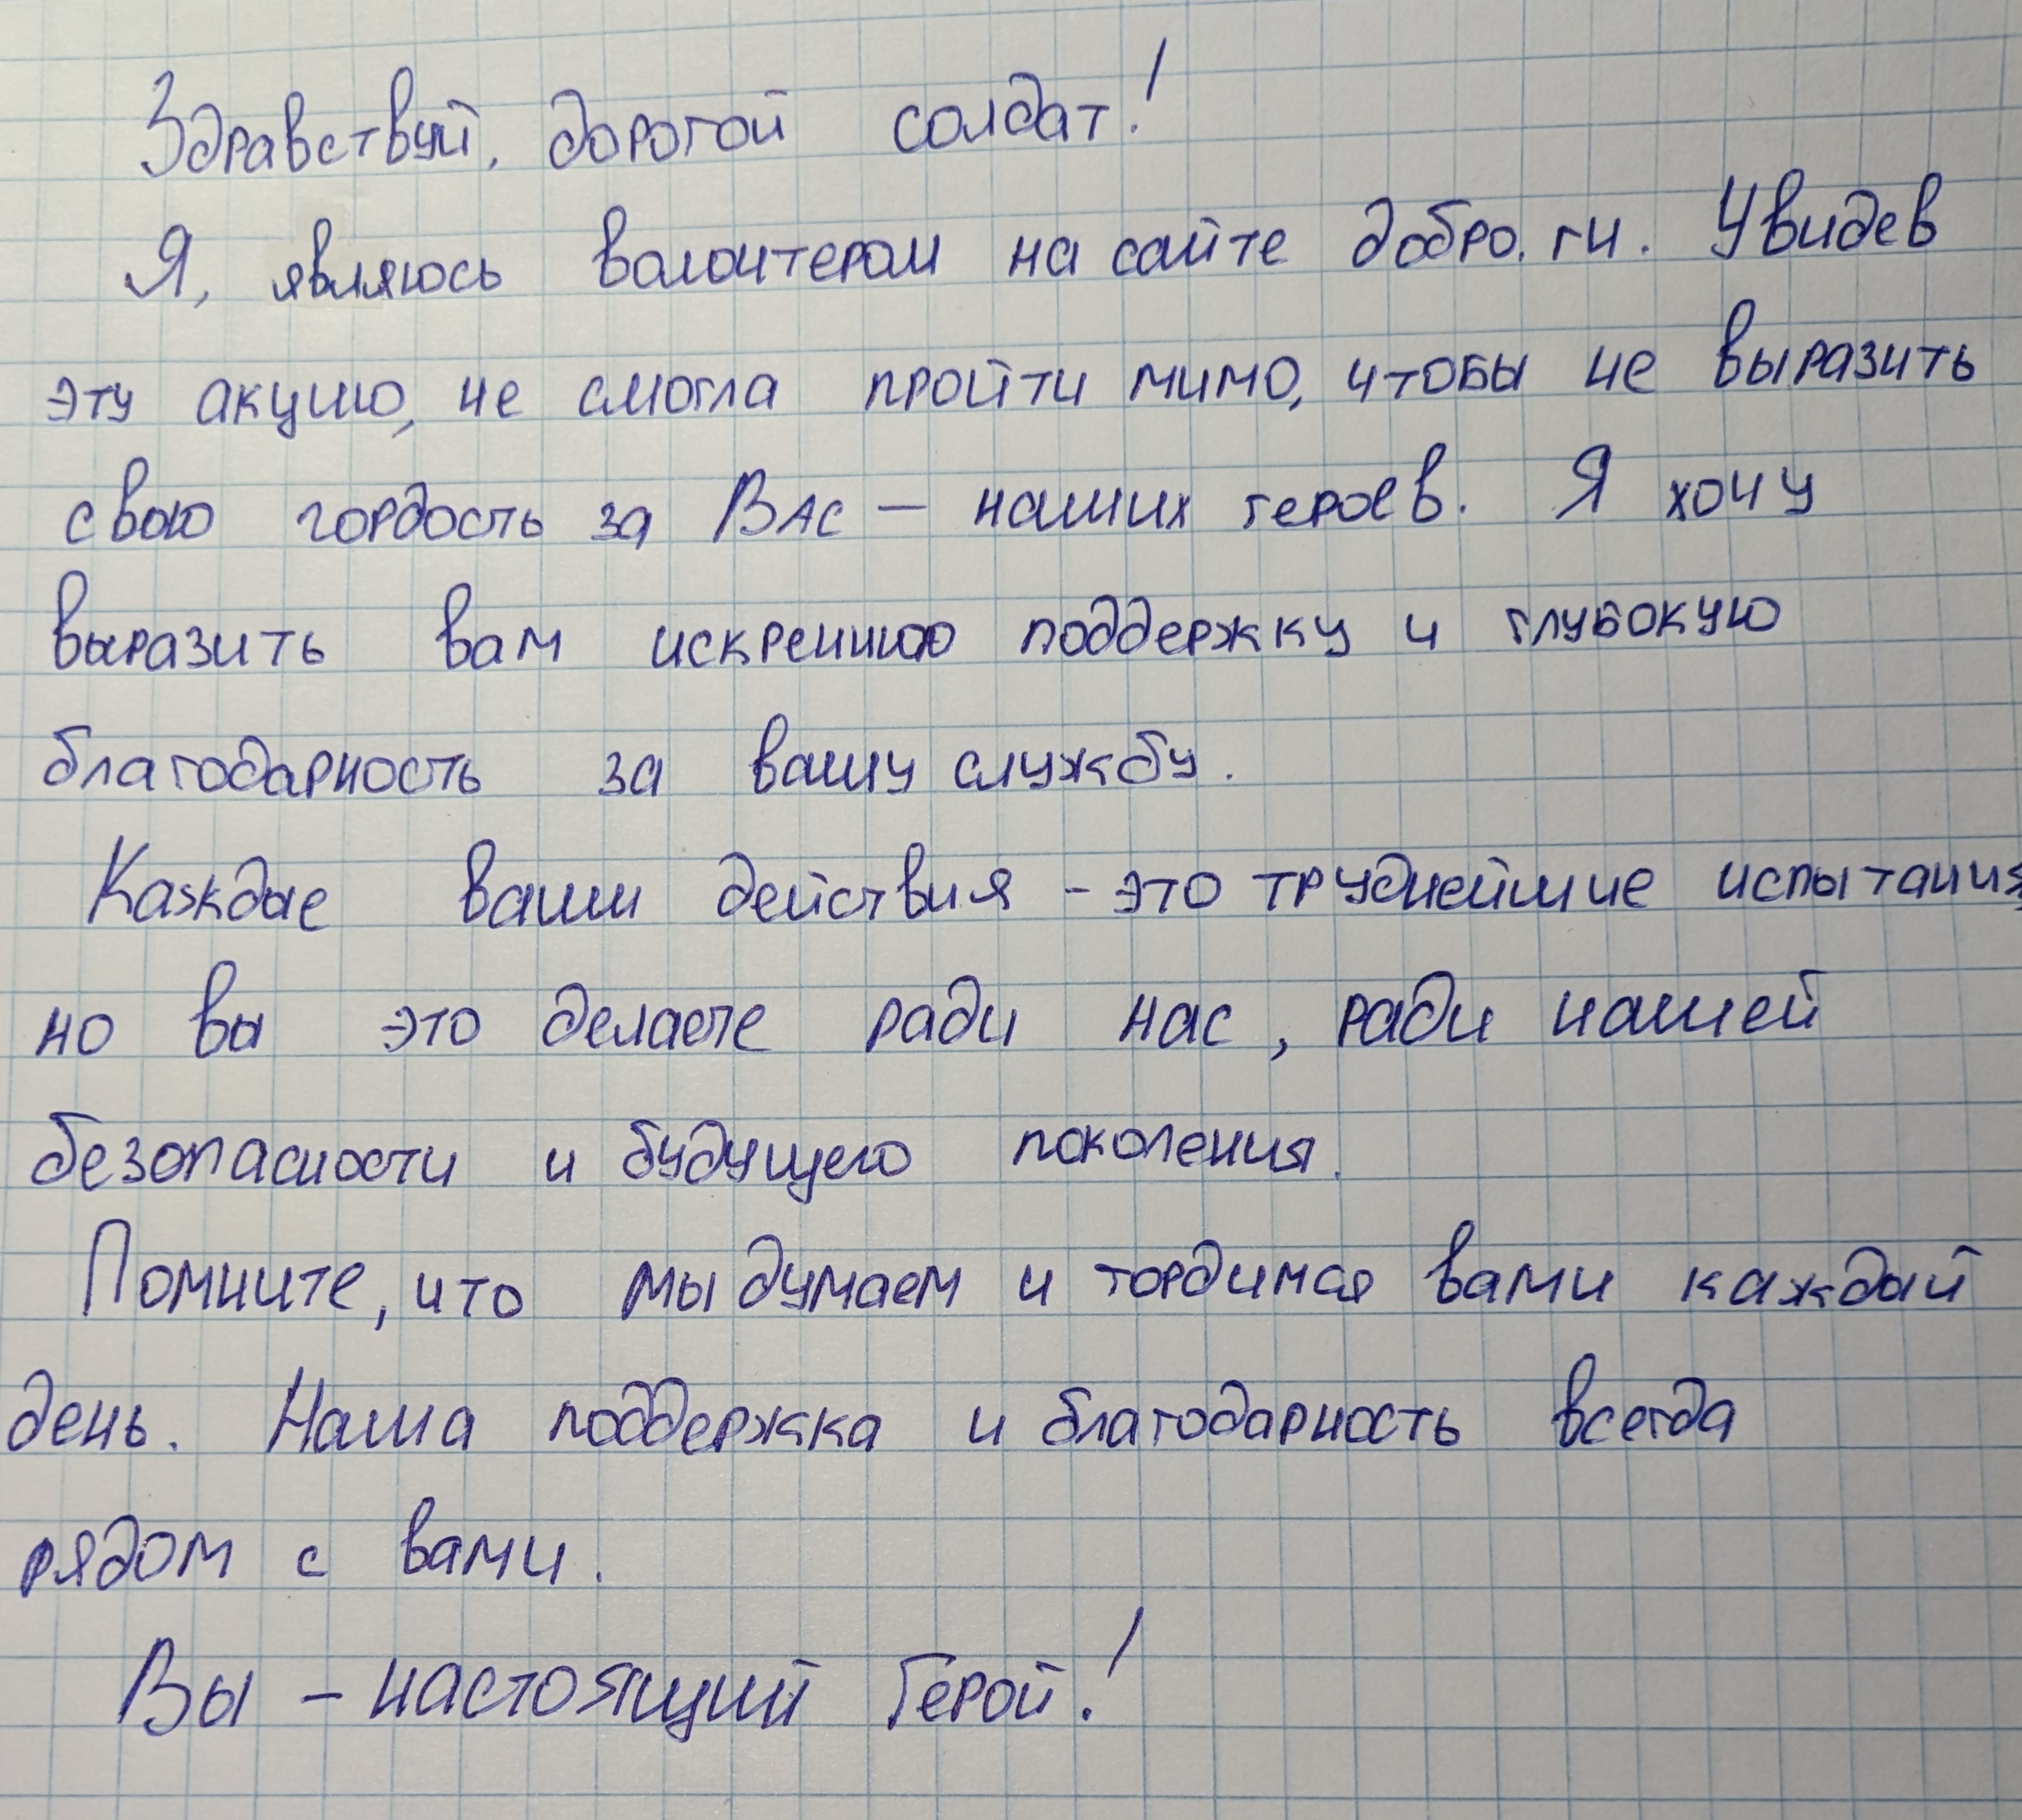 Здравствуй, дорогой солдат!
Я, являюсь волонтером на сайте добро.ги. Увидев
эту акцию, не смогла пройти мимо, чтобы не выразить
свою гордость за Вас – наших героев. Я хочу
выразить вам искреннюю поддержку и глубокую
благодарность за вашу службу.
Каждые ваши действия - это труднейшие испытания,
но вы это делаете ради нас, ради нашей
безопасности и будущего поколения.
Помните, что мы думаем и гордимся вами каждый
день. Наша поддержка и благодарность всегда
рядом с вами.
Вы – настоящий Герой!